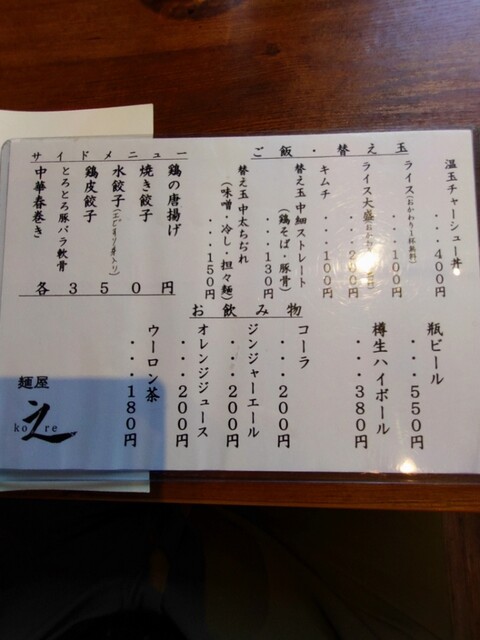 ご飯・替え玉
温玉チャーシュー丼
・・・400円
ライス(おかわり1杯無料)
・・・100円
ライス大盛
・・・200円
キムチ
・・・100円
替え玉 中細ストレート
(鶏そば・豚骨)
・・・130円
替え玉 中太ちぢれ
(味噌・冷し・担々麺)
・・・150円
サイドメニュー
鶏の唐揚げ
焼き餃子
水餃子
鶏皮餃子
とろとろ豚バラ軟骨
中華春巻き
各350円
お飲み物
瓶ビール
・・・550円
樽生ハイボール
・・・380円
コーラ
・・・200円
ジンジャーエール
・・・200円
オレンジジュース
・・・200円
ウーロン茶
・・・180円
麺屋
之
ko re